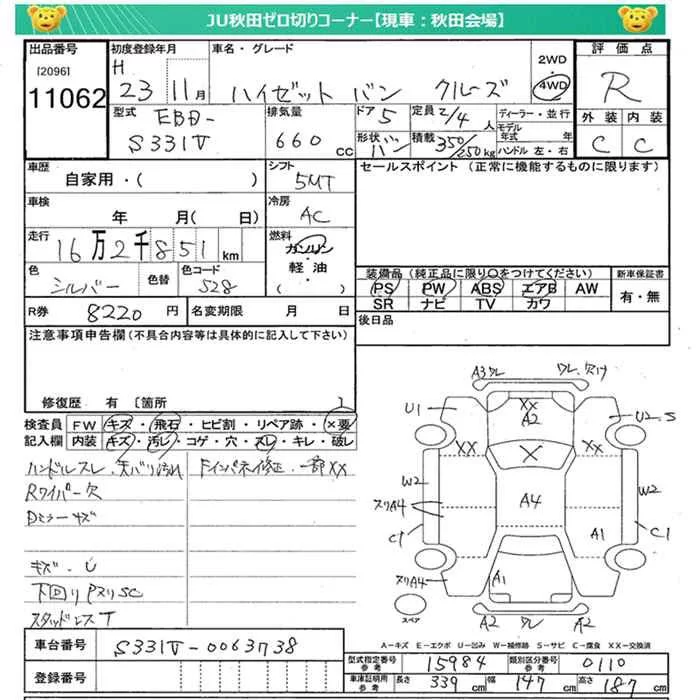 JU秋田ゼロ切りコーナー【現車：秋田会場】
出品番号
[2096]
11062
初度登録年月
H 23 11月
車名・グレード
ハイゼット バン クルーズ
2WD
4WD
評価点
R
型式
EBD-
S331V
排気量
660 CC
ドア
5
定員
2/4 人
形状
バン
積載
350/250 kg
ディーラー・並行
モデル年式 年
ハンドル 左・右
外装 内装
C C
車歴
自家用・( )
シフト
5MT
セールスポイント（正常に機能するものに限ります）
車検
年 月( 日)
冷房
AC
走行
16万2千851km
燃料
ガソリン・
軽油
( )
色
シルバー
色替
色コード
S28
装備品（純正品に限り○をつけてください）
新車保証書
PS PW ABS エアB AW
SR ナビ TV カワ
有・無
R券 8220円
名変期限 月 日
後日品
注意事項申告欄（不具合内容等は具体的に記入して下さい）
修復歴 有〔箇所 〕
検査員
記入欄
FW キズ・飛石・ヒビ割・リペア跡・×要
内装 キズ・汚レ・コゲ・穴・スレ・キレ・破レ
ハンドルスレ、天バリ汚れ
Fインパネ修正、一部XX
Rワイパー欠
Dミラーキズ
キズ・U
下回りPスリSC
スタッドレスT
A3ワレ ワレ、欠け
U1 XX A2 U2、S
XX X XX
W2 A4 W2
スリA4
C1 A1 C1
スリA4 A1
スペア
A2 ワレ A2
A－キズ E－エクボ U－凹み W－補修跡 S－サビ C－腐食 XX－交換済
車台番号 S331V-0063738
登録番号
型式指定番号 参考 15984
類別区分番号 参考 0110
車庫証明用 参考 長さ 339 cm 幅 147 cm 高さ 187 cm